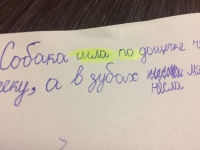 Собака шла по дощечке ч
реку, а в зубах мя
несла